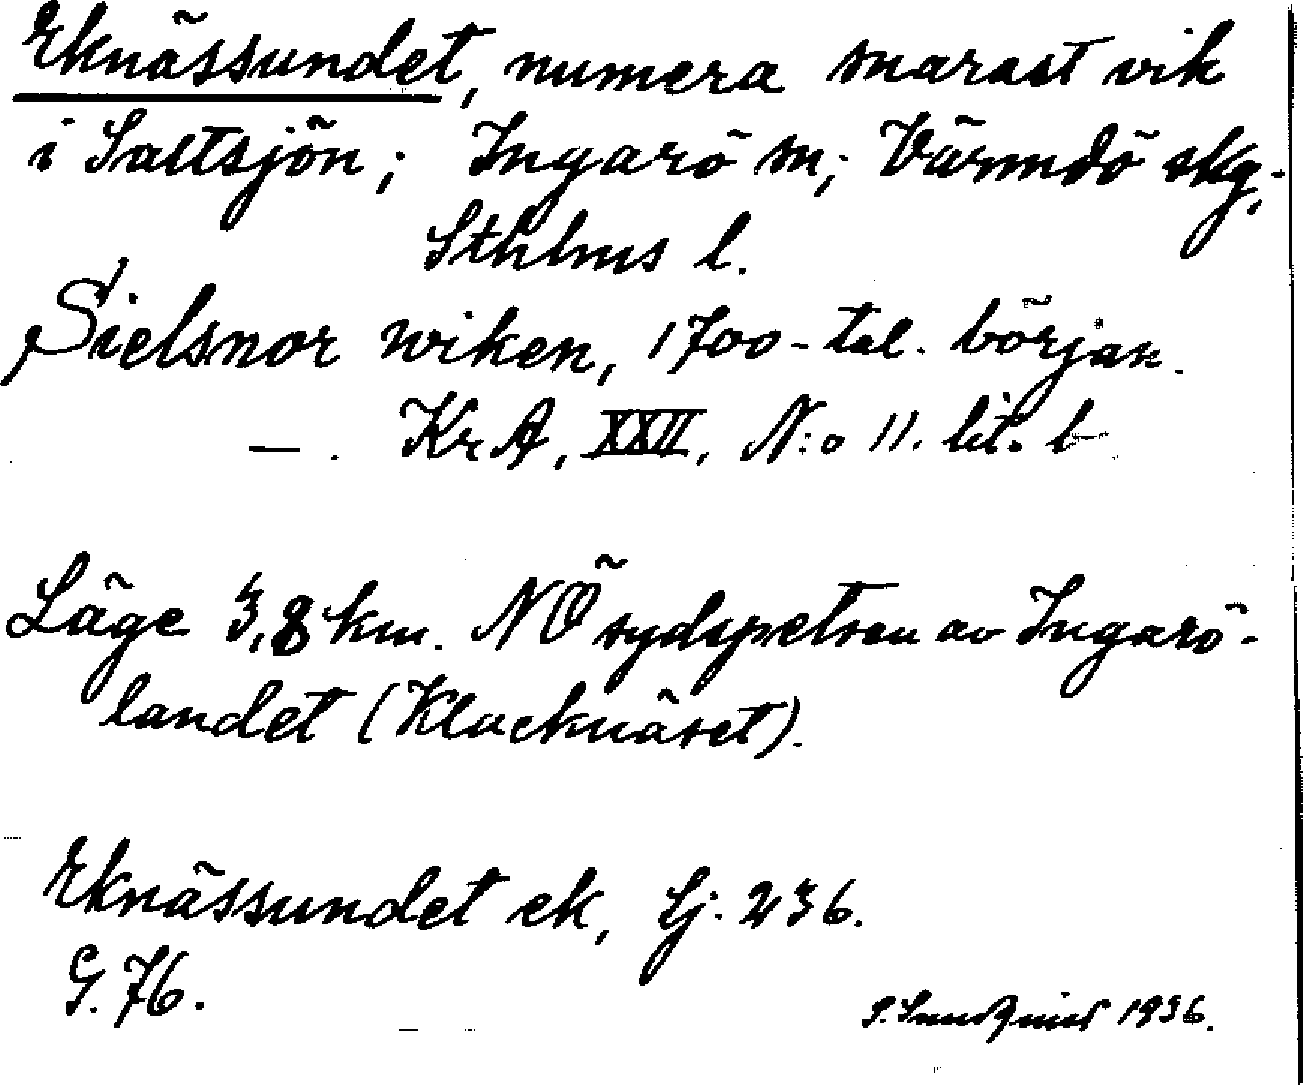 Eknässundet, numera smarast vik
i Saltsjön; Ingarö sn; Värmdö skg;
Sthlms l.
Sielsnor wiken, 1700-tal. början.
—. KrA, XXII, N:o 11. lit. b
Läge 3,8 km. NÖ sydspetsen av Ingarö-
landet (Klacknäset).
Eknässundet ek, Lj. 236.
G. 76.
1936.